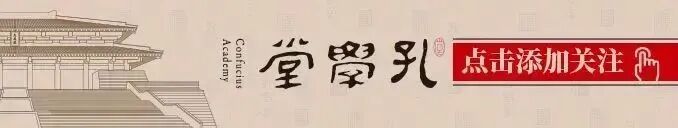 Confucius
Academy
孔學堂
点击添加关注